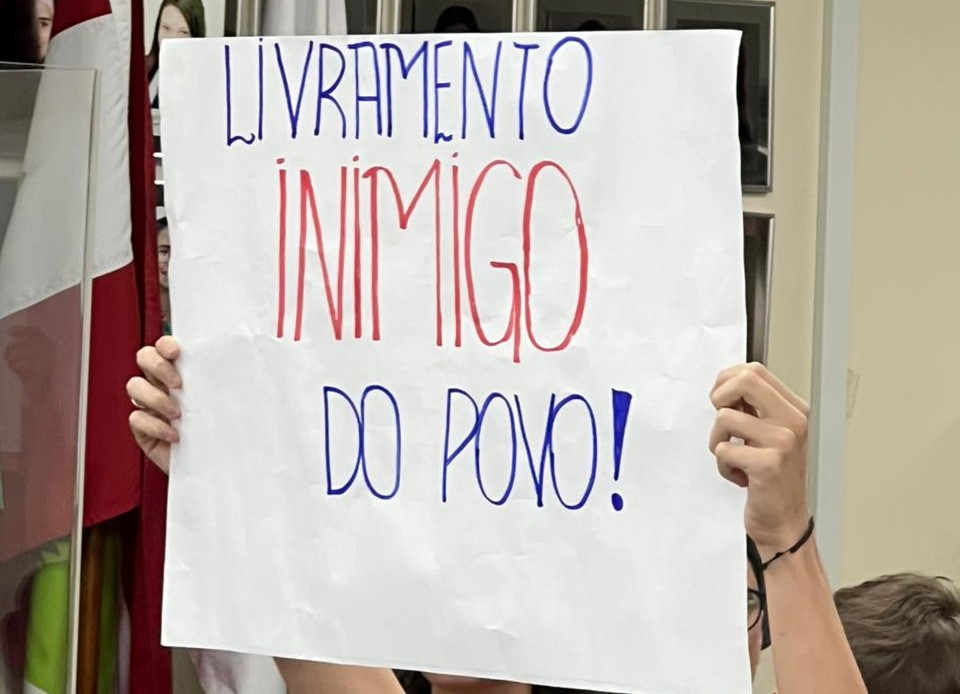 LIVRAMENTO
INIMIGO
DO POVO!